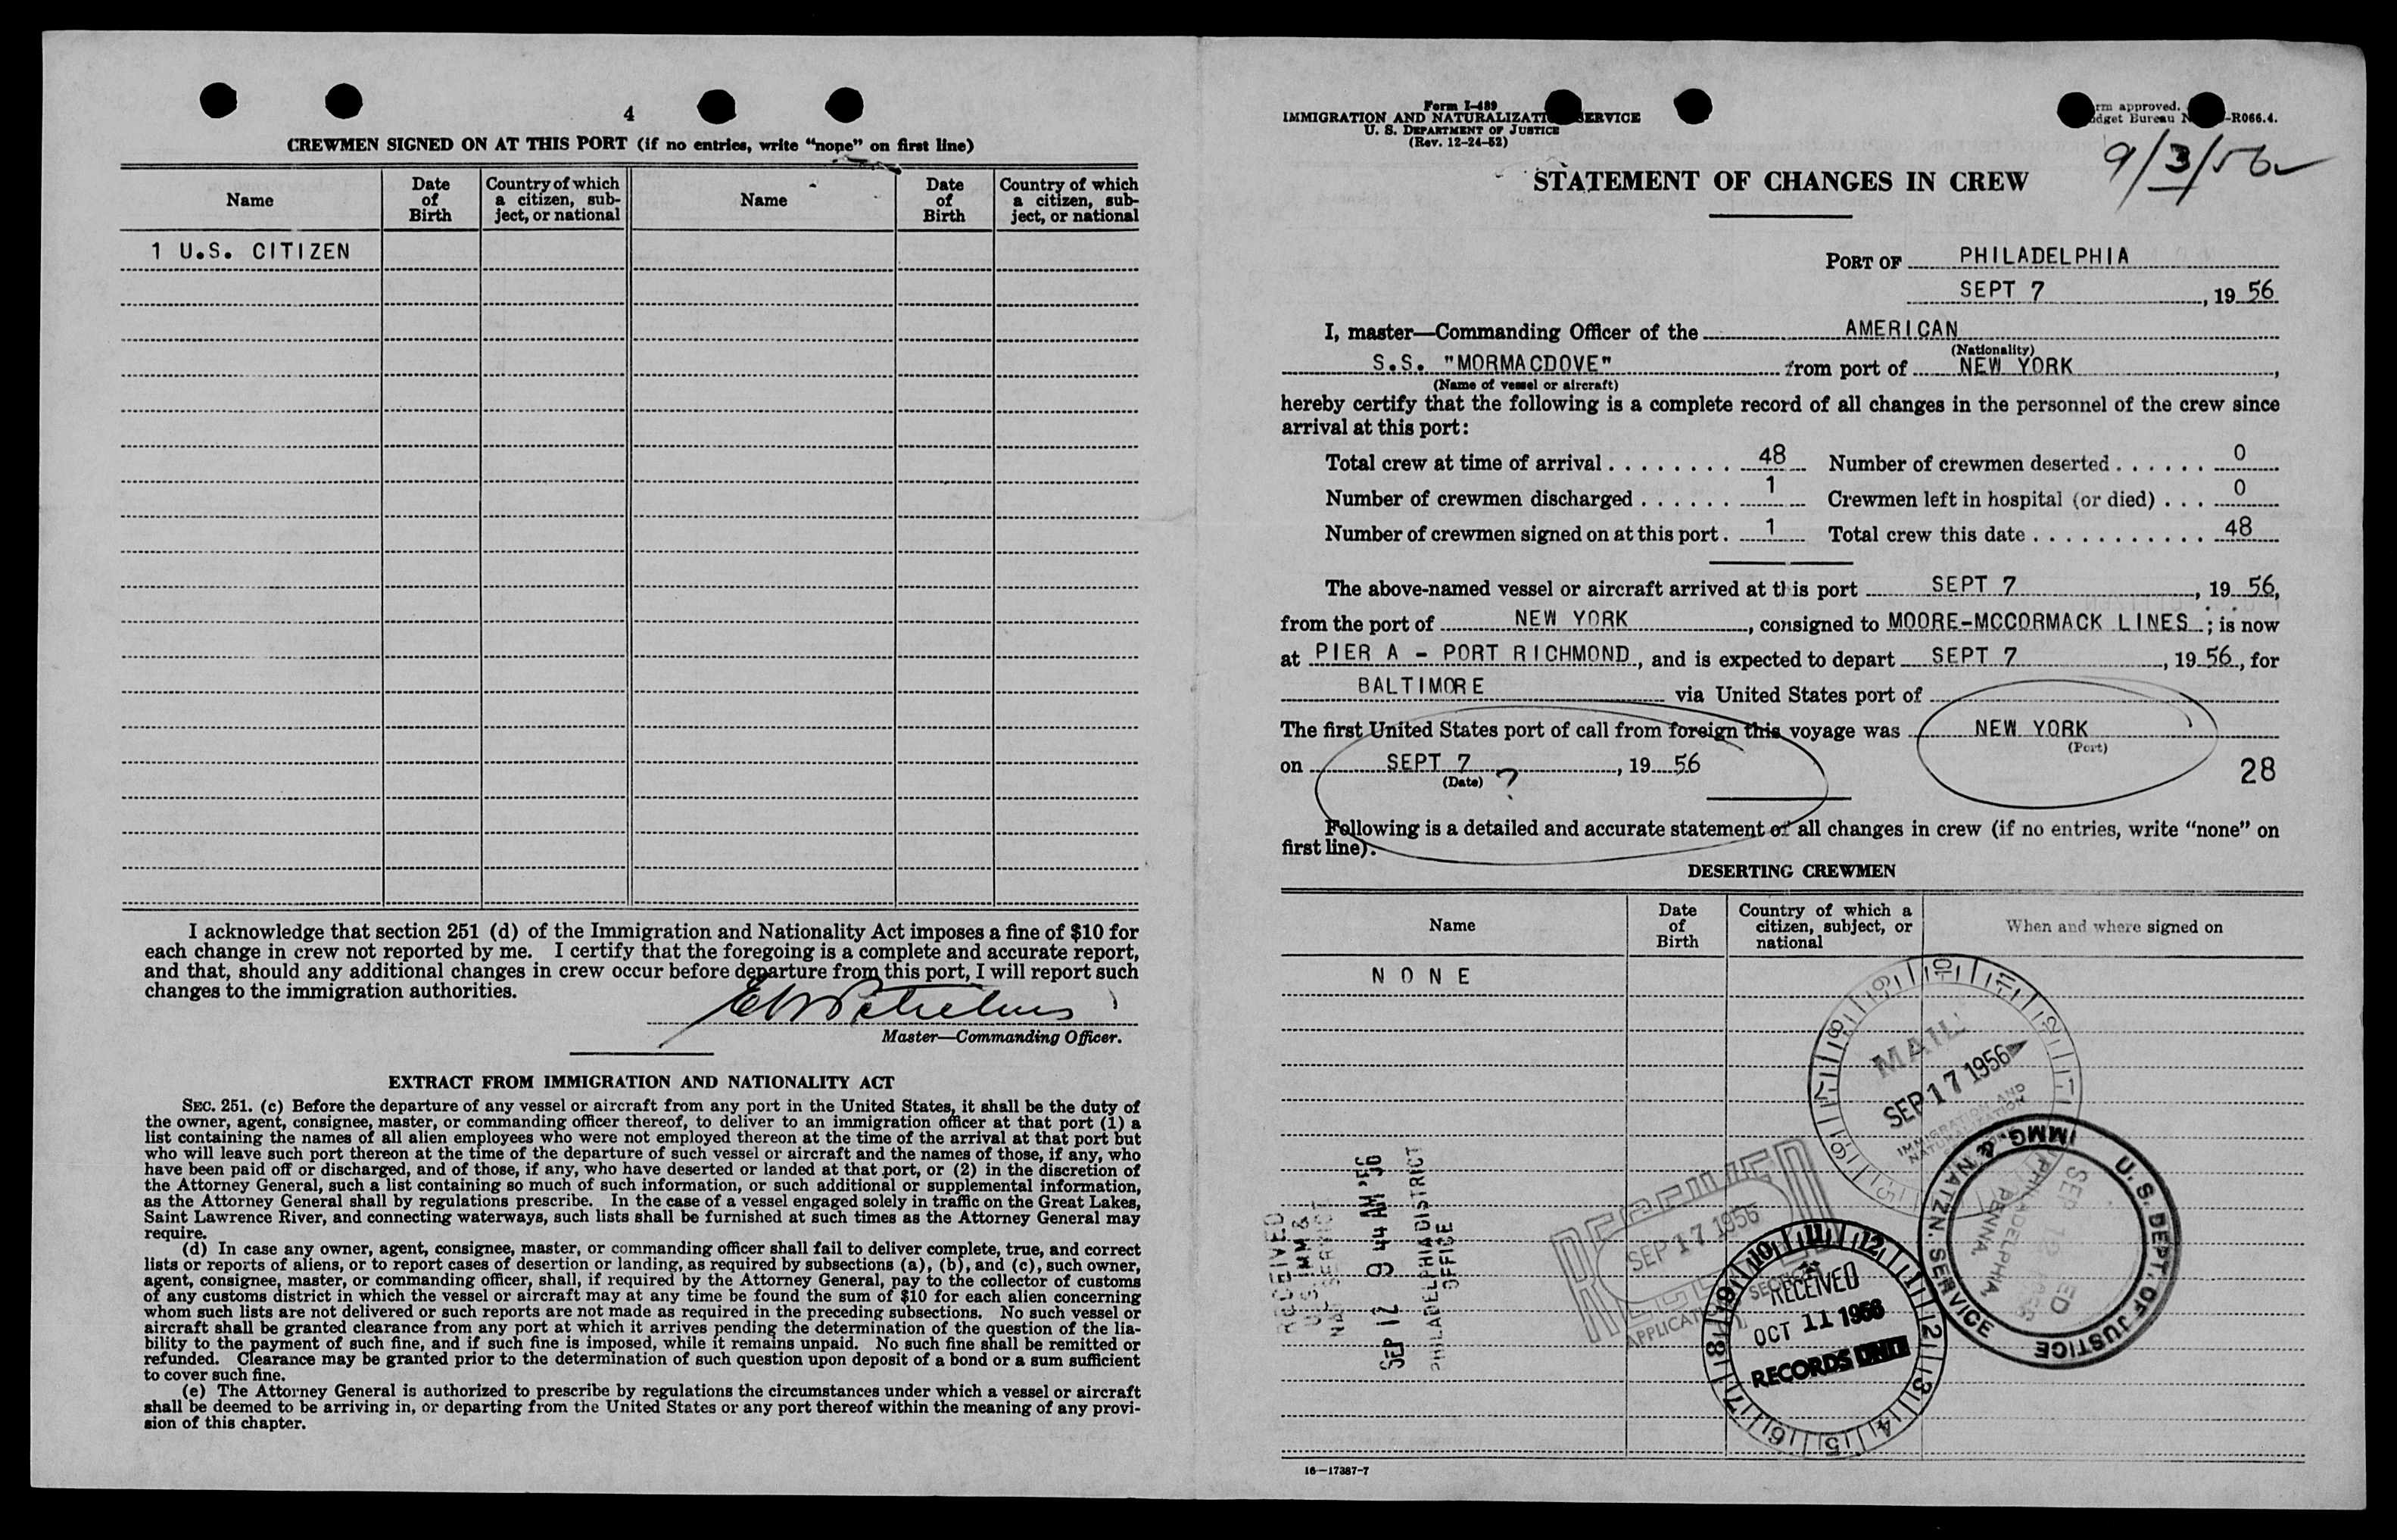 4
CREWMEN SIGNED ON AT THIS PORT (if no entries, write “none” on first line)
Name
Date of Birth
Country of which a citizen, subject, or national
Name
Date of Birth
Country of which a citizen, subject, or national
1 U.S. CITIZEN
I acknowledge that section 251 (d) of the Immigration and Nationality Act imposes a fine of $10 for
each change in crew not reported by me. I certify that the foregoing is a complete and accurate report,
and that, should any additional changes in crew occur before departure from this port, I will report such
changes to the immigration authorities.
Master—Commanding Officer.
EXTRACT FROM IMMIGRATION AND NATIONALITY ACT
SEC. 251. (c) Before the departure of any vessel or aircraft from any port in the United States, it shall be the duty of
the owner, agent, consignee, master, or commanding officer thereof, to deliver to an immigration officer at that port (1) a
list containing the names of all alien employees who were not employed thereon at the time of the arrival at that port but
who will leave such port thereon at the time of the departure of such vessel or aircraft and the names of those, if any, who
have been paid off or discharged, and of those, if any, who have deserted or landed at that port, or (2) in the discretion of
the Attorney General, such a list containing so much of such information, or such additional or supplemental information,
as the Attorney General shall by regulations prescribe. In the case of a vessel engaged solely in traffic on the Great Lakes,
Saint Lawrence River, and connecting waterways, such lists shall be furnished at such times as the Attorney General may
require.
(d) In case any owner, agent, consignee, master, or commanding officer shall fail to deliver complete, true, and correct
lists or reports of aliens, or to report cases of desertion or landing, as required by subsections (a), (b), and (c), such owner,
agent, consignee, master, or commanding officer, shall, if required by the Attorney General, pay to the collector of customs
of any customs district in which the vessel or aircraft may at any time be found the sum of $10 for each alien concerning
whom such lists are not delivered or such reports are not made as required in the preceding subsections. No such vessel or
aircraft shall be granted clearance from any port at which it arrives pending the determination of the question of the lia-
bility to the payment of such fine, and if such fine is imposed, while it remains unpaid. No such fine shall be remitted or
refunded. Clearance may be granted prior to the determination of such question upon deposit of a bond or a sum sufficient
to cover such fine.
(e) The Attorney General is authorized to prescribe by regulations the circumstances under which a vessel or aircraft
shall be deemed to be arriving in, or departing from the United States or any port thereof within the meaning of any provi-
sion of this chapter.
Form I-489
IMMIGRATION AND NATURALIZATI SERVICE
U. S. DEPARTMENT OF JUSTICE
(Rev. 12-24-52)
rm approved.
dget Bureau N -R066.4.
9/3/56
STATEMENT OF CHANGES IN CREW
PORT OF PHILADELPHIA
SEPT 7, 19 56
I, master—Commanding Officer of the AMERICAN
(Nationality)
S.S. "MORMACDOVE" from port of NEW YORK,
(Name of vessel or aircraft)
hereby certify that the following is a complete record of all changes in the personnel of the crew since
arrival at this port:
Total crew at time of arrival 48 Number of crewmen deserted 0
Number of crewmen discharged 1 Crewmen left in hospital (or died) 0
Number of crewmen signed on at this port 1 Total crew this date 48
The above-named vessel or aircraft arrived at this port SEPT 7, 19 56,
from the port of NEW YORK, consigned to MOORE-MCCORMACK LINES; is now
at PIER A - PORT RICHMOND, and is expected to depart SEPT 7, 19 56, for
BALTIMORE via United States port of
The first United States port of call from foreign this voyage was NEW YORK
(Port)
on SEPT 7, 19 56
(Date) ?
28
Following is a detailed and accurate statement of all changes in crew (if no entries, write “none” on
first line).
DESERTING CREWMEN
Name
Date of Birth
Country of which a citizen, subject, or national
When and where signed on
NONE
MAIL
SEP 17 1956
IMMIGRATION AND
NATURALIZATION
U. S. DEPT. OF JUSTICE
IMMG. & NATZN. SERVICE
PHILADELPHIA,
PENNA.
RECEIVED
U.S. IMM &
NAT SERVICE
SEP 12 9 44 AM '56
PHILADELPHIA DISTRICT
OFFICE
SEP 17 1956
SECTION
RECEIVED
OCT 11 1956
RECORDS UNIT
16—17387-7